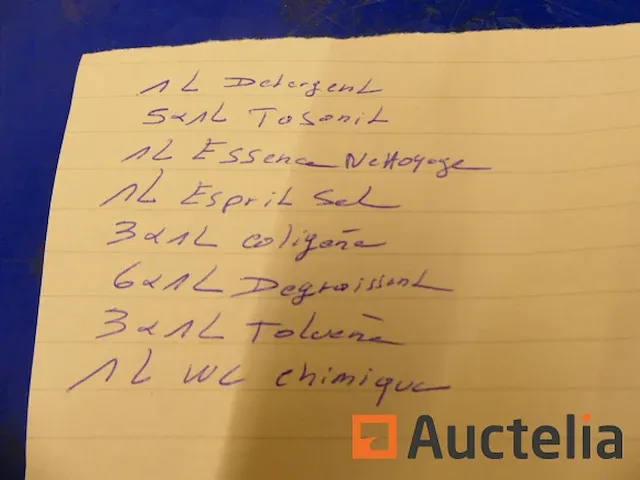 1L Detergent
5x1L Tosonit
1L Essence Nettoyage
1L Esprit Sel
3x1L coligène
6x1L Degraissant
3x1L Toluène
1L WC chimique
Auctelia